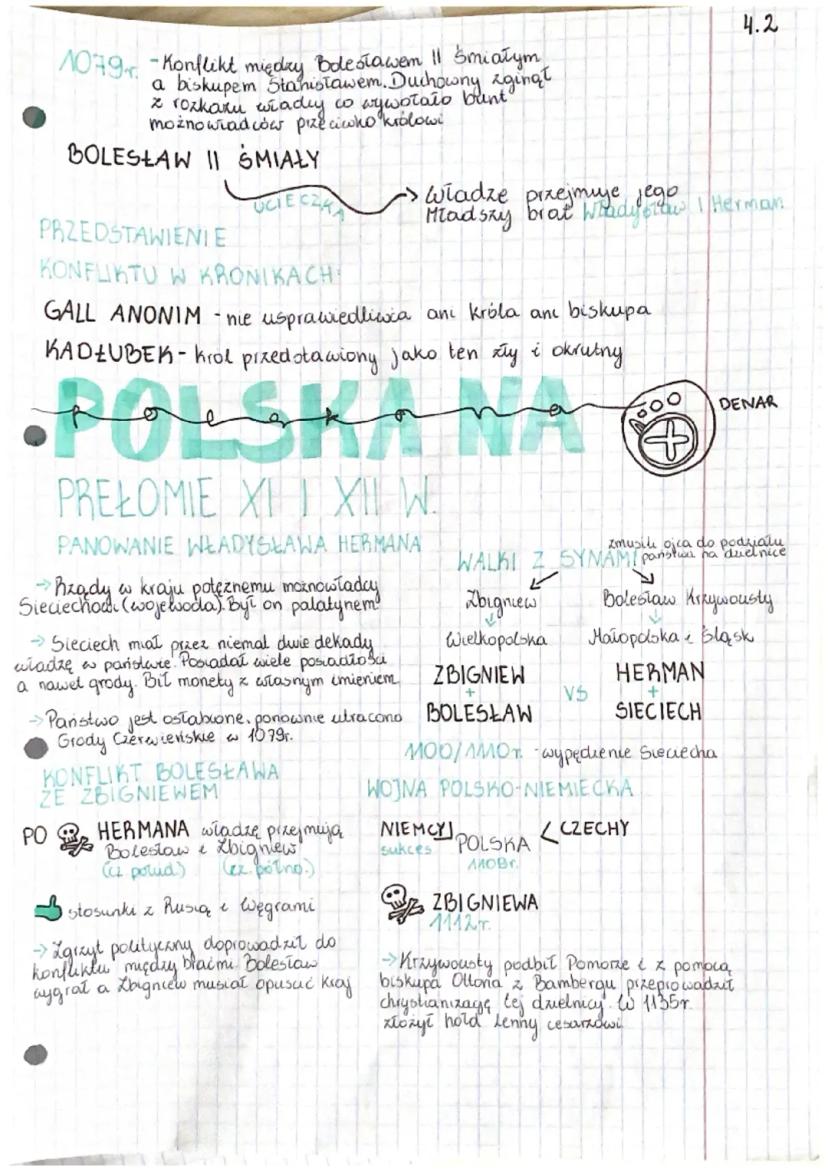 4.2
1079r. - Konflikt między Bolesławem II Śmiałym
a biskupem Stanisławem. Duchowny zginął
z rozkazu władcy co wywołało bunt
możnowładców przeciwko królowi
BOLESŁAW II ŚMIAŁY
UCIECZKA
Władze przejmuje jego
Mładszy brat Władysław I Herman
PRZEDSTAWIENIE
KONFLIKTU W KRONIKACH:
GALL ANONIM - nie usprawiedliwia ani króla ani biskupa
KADŁUBEK - król przedstawiony jako ten zły i okrutny
POLSKA NA
DENAR
PREŁOMIE XI I XII W.
PANOWANIE WŁADYSŁAWA HERMANA
→ Rządy w kraju potężnemu możnowładcy
Sieciechowi (wojewoda). Był on palatynem
→ Sieciech miał przez niemal dwie dekady
władzę w państwie. Posiadał wiele posiadłości
a nawet grody. Bił monety z własnym imieniem
→ Państwo jest osłabione, ponownie utracono
Grody Czerwieńskie w 1079r.
WALKI Z SYNAMI
zmusili ojca do podziału
państwa na dzielnice
Zbigniew Bolesław Krzywousty
Wielkopolska Małopolska i Śląsk
ZBIGNIEW HERMAN
+ VS +
BOLESŁAW SIECIECH
1100/1110r. - wypędzenie Sieciecha
KONFLIKT BOLESŁAWA
ZE ZBIGNIEWEM
PO HERMANA władzę przejmują
Bolesław i Zbigniew
(cz. połud.) (cz. półno.)
stosunki z Rusią i Węgrami
→ Zgrzyt polityczny doprowadził do
konfliktu między braćmi. Bolesław
wygrał a Zbigniew musiał opuścić kraj
WOJNA POLSKO-NIEMIECKA
NIEMCY POLSKA CZECHY
sukces 1108r.
ZBIGNIEWA
1112r.
→ Krzywousty podbił Pomorze i z pomocą
biskupa Ottona z Bambergu przeprowadził
chrystianizację tej dzielnicy. W 1135r.
złożył hołd lenny cesarzowi